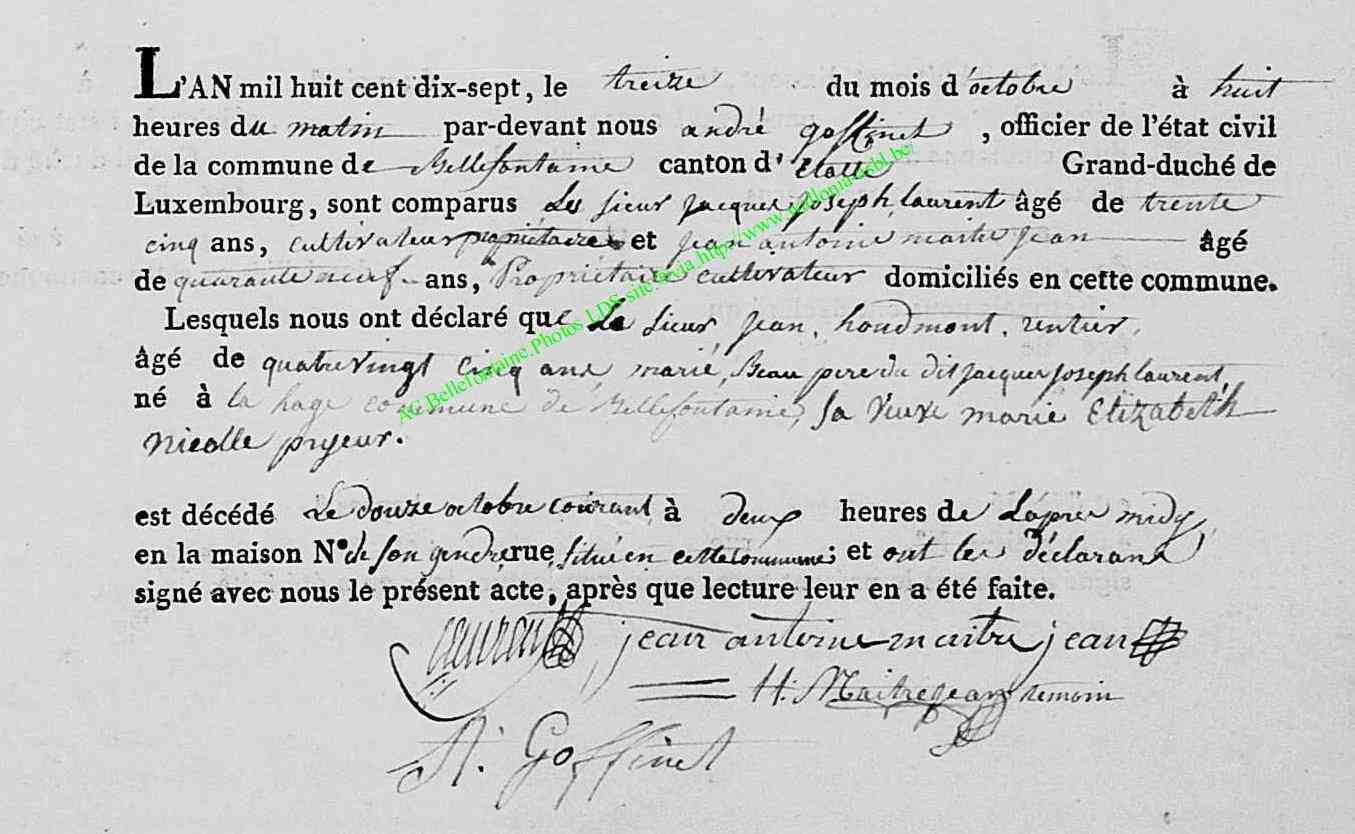 L'AN mil huit cent dix-sept, le treize du mois d'octobre à huit
heures du matin par-devant nous andré goffinet, officier de l'état civil
de la commune de Bellefontaine canton d'Etalle Grand-duché de
Luxembourg, sont comparus Les sieur jacques joseph laurent âgé de trente
cinq ans, cultivateur propriétaire et jean antoine maitre jean âgé
de quarante neuf ans, Propriétaire cultivateur domiciliés en cette commune.
Lesquels nous ont déclaré que Le sieur jean houdmont, rentier,
âgé de quatrevingt cinq ans, marié, Beau pere du dit jacques joseph laurent,
né à la hage commune de Bellefontaine, sa veuve marie Elizabeth
Nicolle pryeur.
est décédé Le douze octobre courant à deux heures de L'apres midy,
en la maison N.º de son gendre rue, situé en cette commune; et ont les déclarans
signé avec nous le présent acte, après que lecture leur en a été faite.
Laurent jean antoine maitre jean
H. Maitrejean temoin
A. Goffinet
AG Bellefontaine.Photos LDS site via http://www.wallonia.dobl.be/